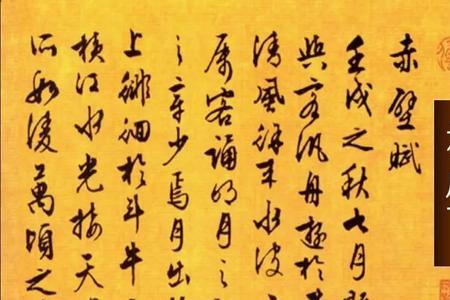 赤壁賦
壬戌之秋七月既
與客汎舟遊於赤
清風徐来水波
属客誦明月之
之章少焉月出於
上徘徊於斗牛
横江水光接天
所如凌萬頃之